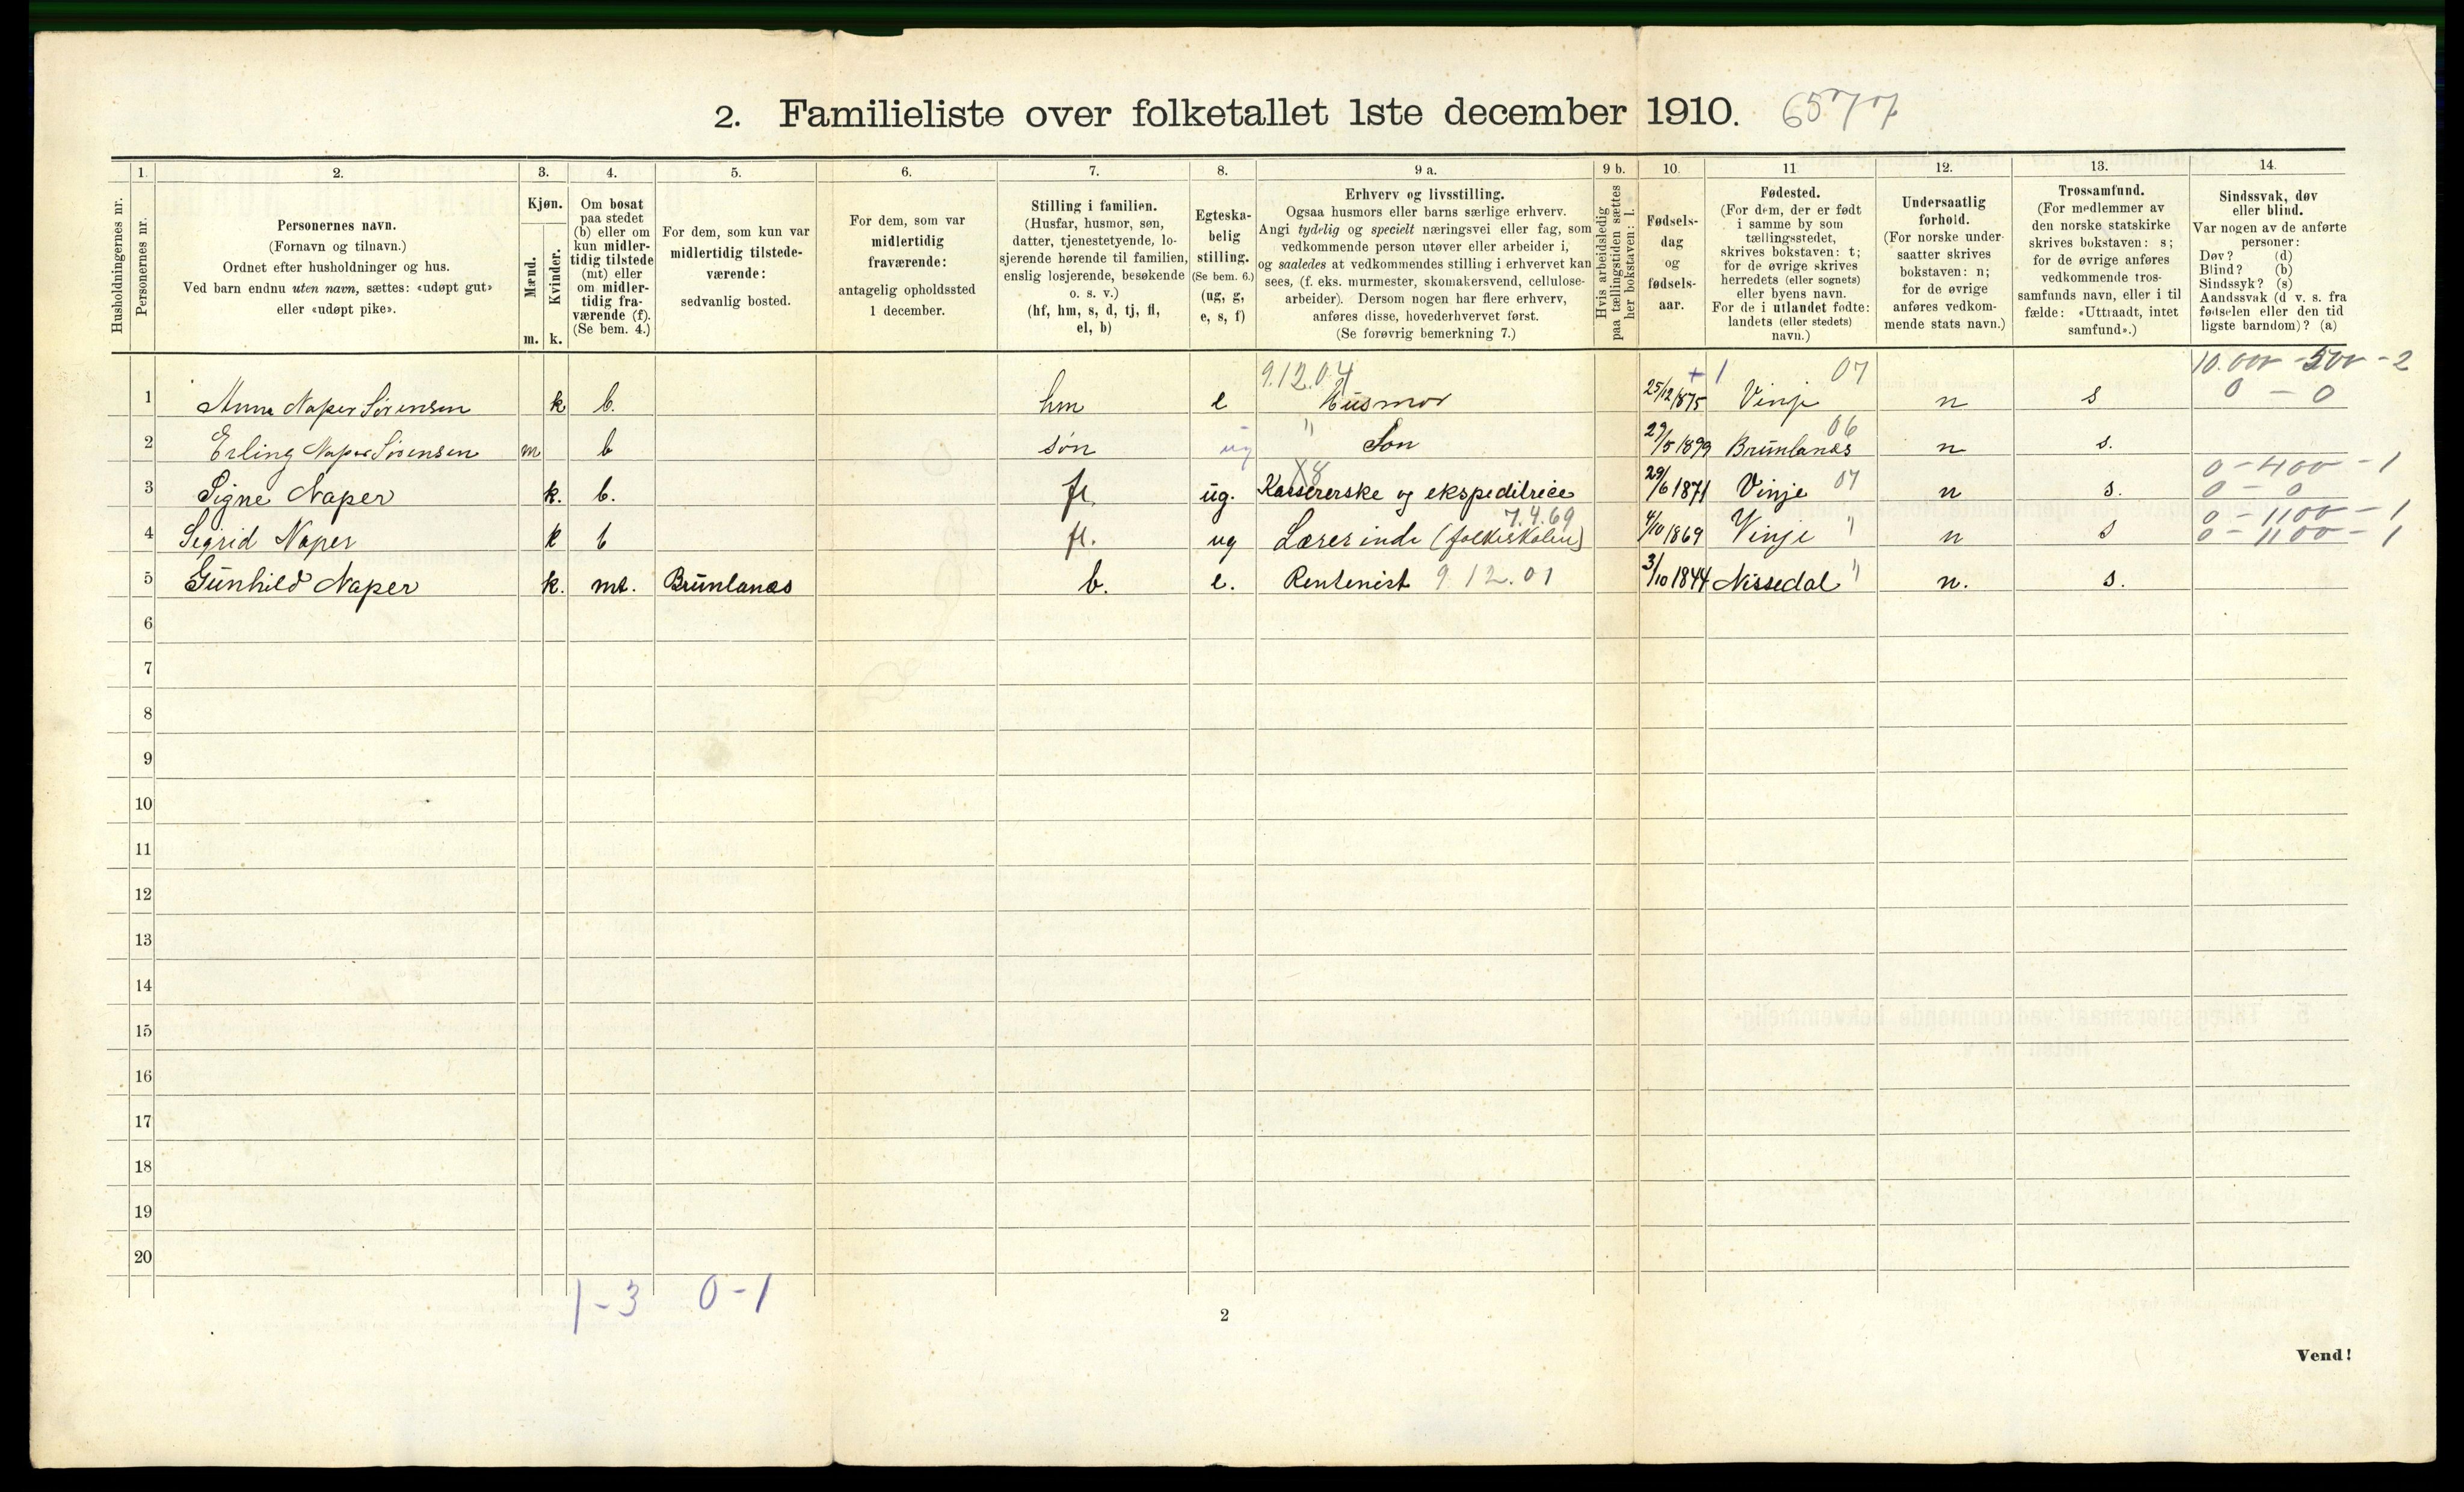 2. Familieliste over folketallet 1ste december 1910. 6577
Husholdningernes nr.
1. Personernes nr.
2. Personernes navn.
(Fornavn og tilnavn.)
Ordnet efter husholdninger og hus.
Ved barn endnu uten navn, sættes: «udøpt gut»
eller «udøpt pike».
3. Kjøn.
Mænd. m.
Kvinder. k.
4. Om bosat
paa stedet
(b) eller om
kun midler-
tidig tilstede
(mt) eller
om midler-
tidig fra-
værende (f).
(Se bem. 4.)
5. For dem, som kun var
midlertidig tilstede-
værende:
sedvanlig bosted.
6. For dem, som var
midlertidig
fraværende:
antagelig opholdssted
1 december.
7. Stilling i familien.
(Husfar, husmor, søn,
datter, tjenestetyende, lo-
sjerende hørende til familien,
enslig losjerende, besøkende
o. s. v.)
(hf, hm, s, d, tj, fl,
el, b)
8. Egteska-
belig
stilling.
(Se bem. 6.)
(ug, g,
e, s, f)
9 a. Erhverv og livsstilling.
Ogsaa husmors eller barns særlige erhverv.
Angi tydelig og specielt næringsvei eller fag, som
vedkommende person utøver eller arbeider i,
og saaledes at vedkommendes stilling i erhvervet kan
sees, (f. eks. murmester, skomakersvend, cellulose-
arbeider). Dersom nogen har flere erhverv,
anføres disse, hovederhvervet først.
(Se forøvrig bemerkning 7.)
9 b. Hvis arbeidsledig
paa tællingstiden sættes
her bokstaven: l.
10. Fødsels-
dag
og
fødsels-
aar.
11 Fødested.
(For dem, der er født
i samme by som
tællingsstedet,
skrives bokstaven: t;
for de øvrige skrives
herredets (eller sognets)
eller byens navn.
For de i utlandet fødte:
landets (eller stedets)
navn.)
12. Undersaatlig
forhold.
(For norske under-
saatter skrives
bokstaven: n;
for de øvrige
anføres vedkom-
mende stats navn.)
13. Trossamfund.
(For medlemmer av
den norske statskirke
skrives bokstaven: s;
for de øvrige anføres
vedkommende tros-
samfunds navn, eller i til
fælde: «Uttraadt, intet
samfund».)
14. Sindssvak, døv
eller blind.
Var nogen av de anførte
personer:
Døv? (d)
Blind? (b)
Sindssyk? (s)
Aandssvak (d v. s. fra
fødselen eller den tid
ligste barndom)? (a)
9.12.04 + 1 07 10.000 - 500 - 2
1 Anna Naper Sørensen k b. hm e Husmor 25/12 1875 Vinje n s 0 - 0
06
2 Erling Naper Sørensen m b søn ug " Søn 27/5 1899 Brunlanæs n s.
X8 0 - 400 - 1
3 Signe Naper k. b. fl. ug. Kassererske og ekspeditrice 29/6 1871 Vinje 07 n s. 0 - 0
7.4.69 0 - 1100 - 1
4 Sigrid Naper k b fl. ug Lærerinde (folkeskolen) 4/10 1869 Vinje " n s 0 - 1100 - 1
5 Gunhild Naper k. mt. Brunlanæs b. e. Rentenist 9.12.01 3/10 1844 Nissedal " n. s.
6
7
8
9
10
11
12
13
14
15
16
17
18
19
20
1 - 3 0 - 1
2
Vend!